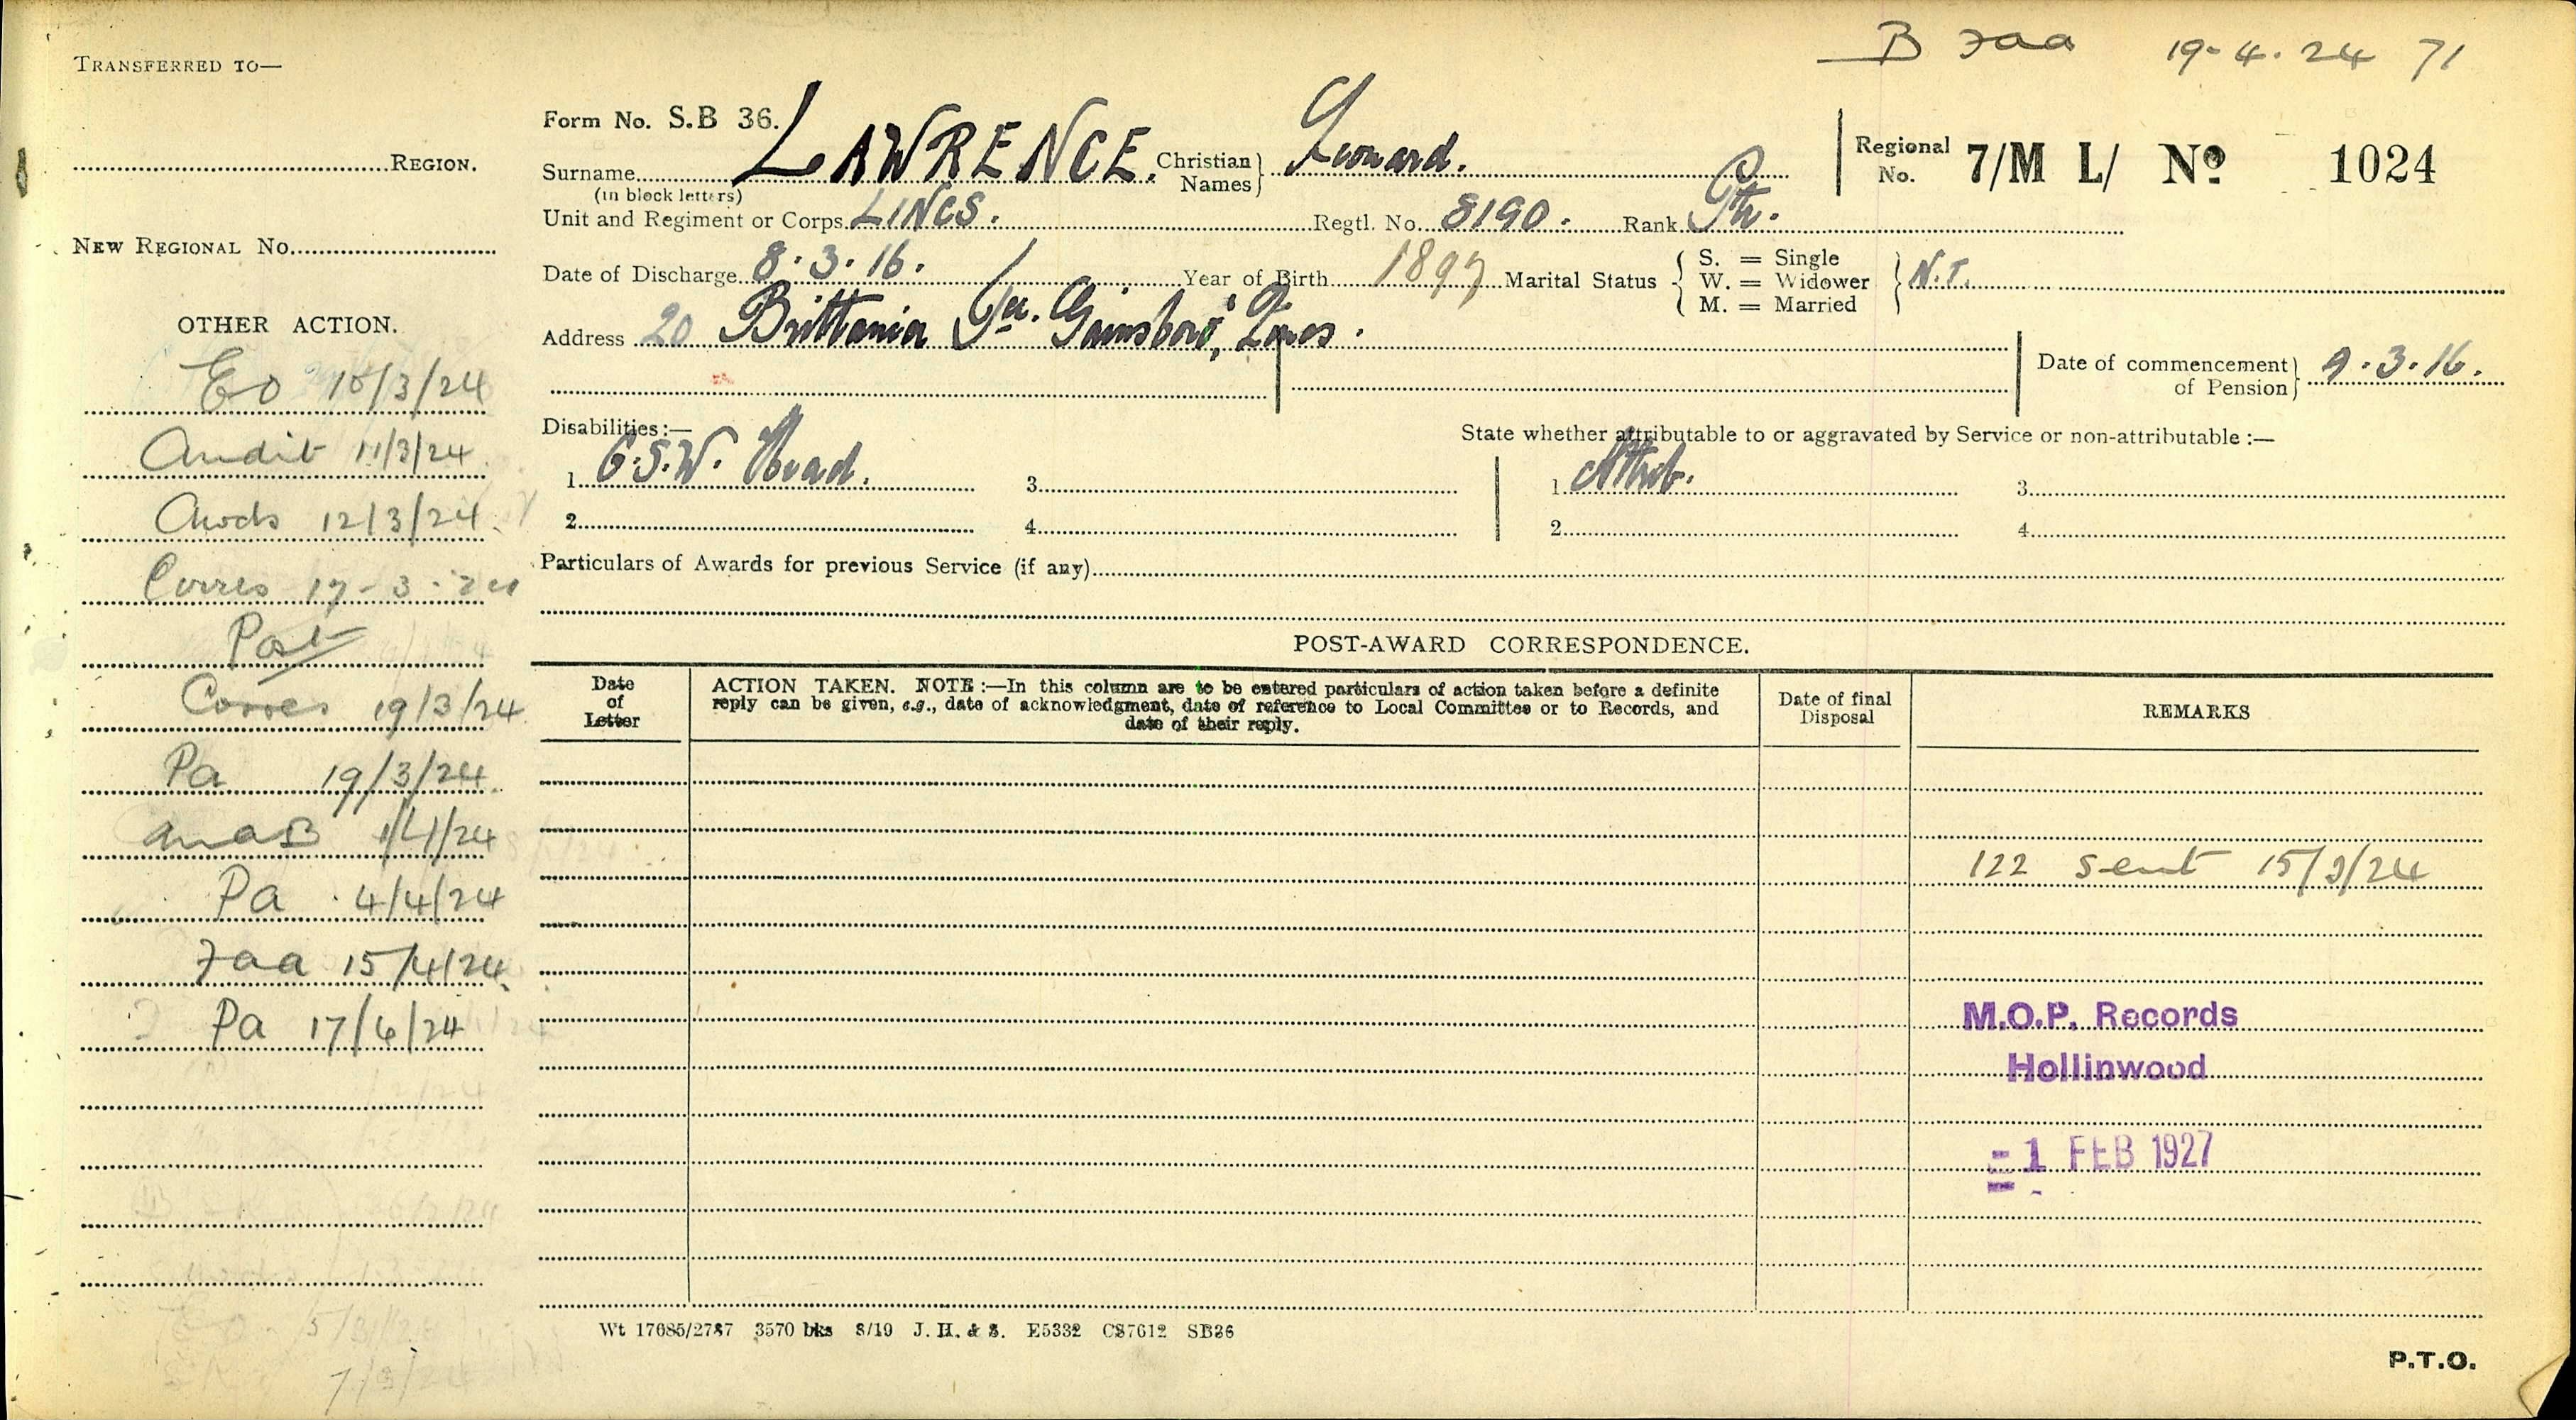 B Faa 19-4-24 71
TRANSFERRED TO—
REGION.
NEW REGIONAL No.
OTHER ACTION.
EO 10/3/24
Audit 11/3/24
12/3/24
Corres 17-3-24
Post
Corres 19/3/24
Pa 19/3/24
1/4/24
Pa 4/4/24
Faa 15/4/24
Pa 17/6/24
7/3/24
Form No. S.B 36.
Surname LAWRENCE. Christian Names} Leonard.
(in block letters)
Regional No. 7/M L/ No 1024
Unit and Regiment or Corps LINCS. Regtl. No. 8190. Rank Pte.
Date of Discharge 8.3.16. Year of Birth 1897 Marital Status { S. = Single W. = Widower M. = Married } N.T.
Address 20 Brittania Ter. Gainsboro', Lincs.
Date of commencement of Pension} 9.3.16.
Disabilities:— State whether attributable to or aggravated by Service or non-attributable :—
1. G.S.W. Head. 3. 1. Attrib. 3.
2. 4. 2. 4.
Particulars of Awards for previous Service (if any)
POST-AWARD CORRESPONDENCE.
Date of Letter
ACTION TAKEN. NOTE :—In this column are to be entered particulars of action taken before a definite
reply can be given, e.g., date of acknowledgment, date of reference to Local Committee or to Records, and
date of their reply.
Date of final Disposal
REMARKS
122 sent 15/3/24
M.O.P. Records
Hollinwood
-1 FEB 1927
Wt 17685/2787 3570 bks 8/19 J. H. & S. E5332 CS7612 SB36
P.T.O.